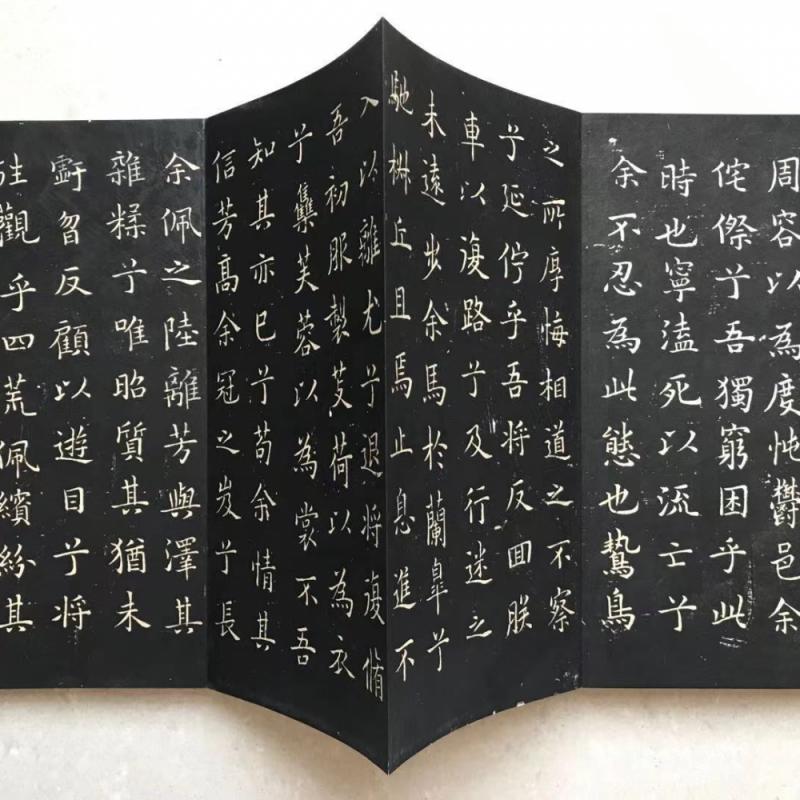 周容以為度忳鬱邑余
侘傺兮吾獨窮困乎此
時也寧溘死以流亡兮
余不忍為此態也鷙鳥
之所厚悔相道之不察
兮延佇乎吾將反回朕
車以復路兮及行迷之
未遠步余馬於蘭皋兮
馳椒丘且焉止息進不
入以離尤兮退將復脩
吾初服製芰荷以為衣
兮雧芙蓉以為裳不吾
知其亦已兮苟余情其
信芳高余冠之岌兮長
余佩之陸離芳與澤其
雜糅兮唯昭質其猶未
虧曶反顧以遊目兮將
往觀乎四荒佩繽紛其